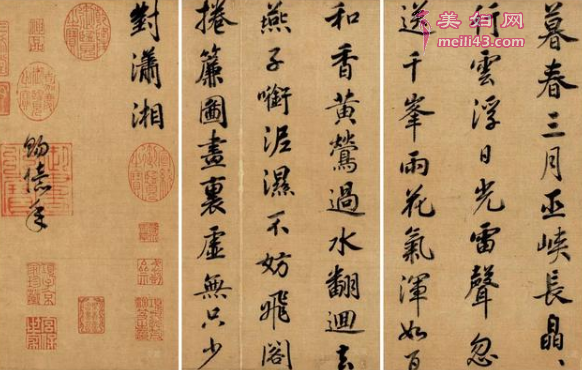 暮春三月巫峽長晶、
行雲浮日光雷聲忽
送千峯雨花氣渾如百
和香黃鶯過水翻迴去
燕子啣泥濕不妨飛閣
捲簾圖畫裏虛無只少
對瀟湘
賜億年
美妇网
meili43.com